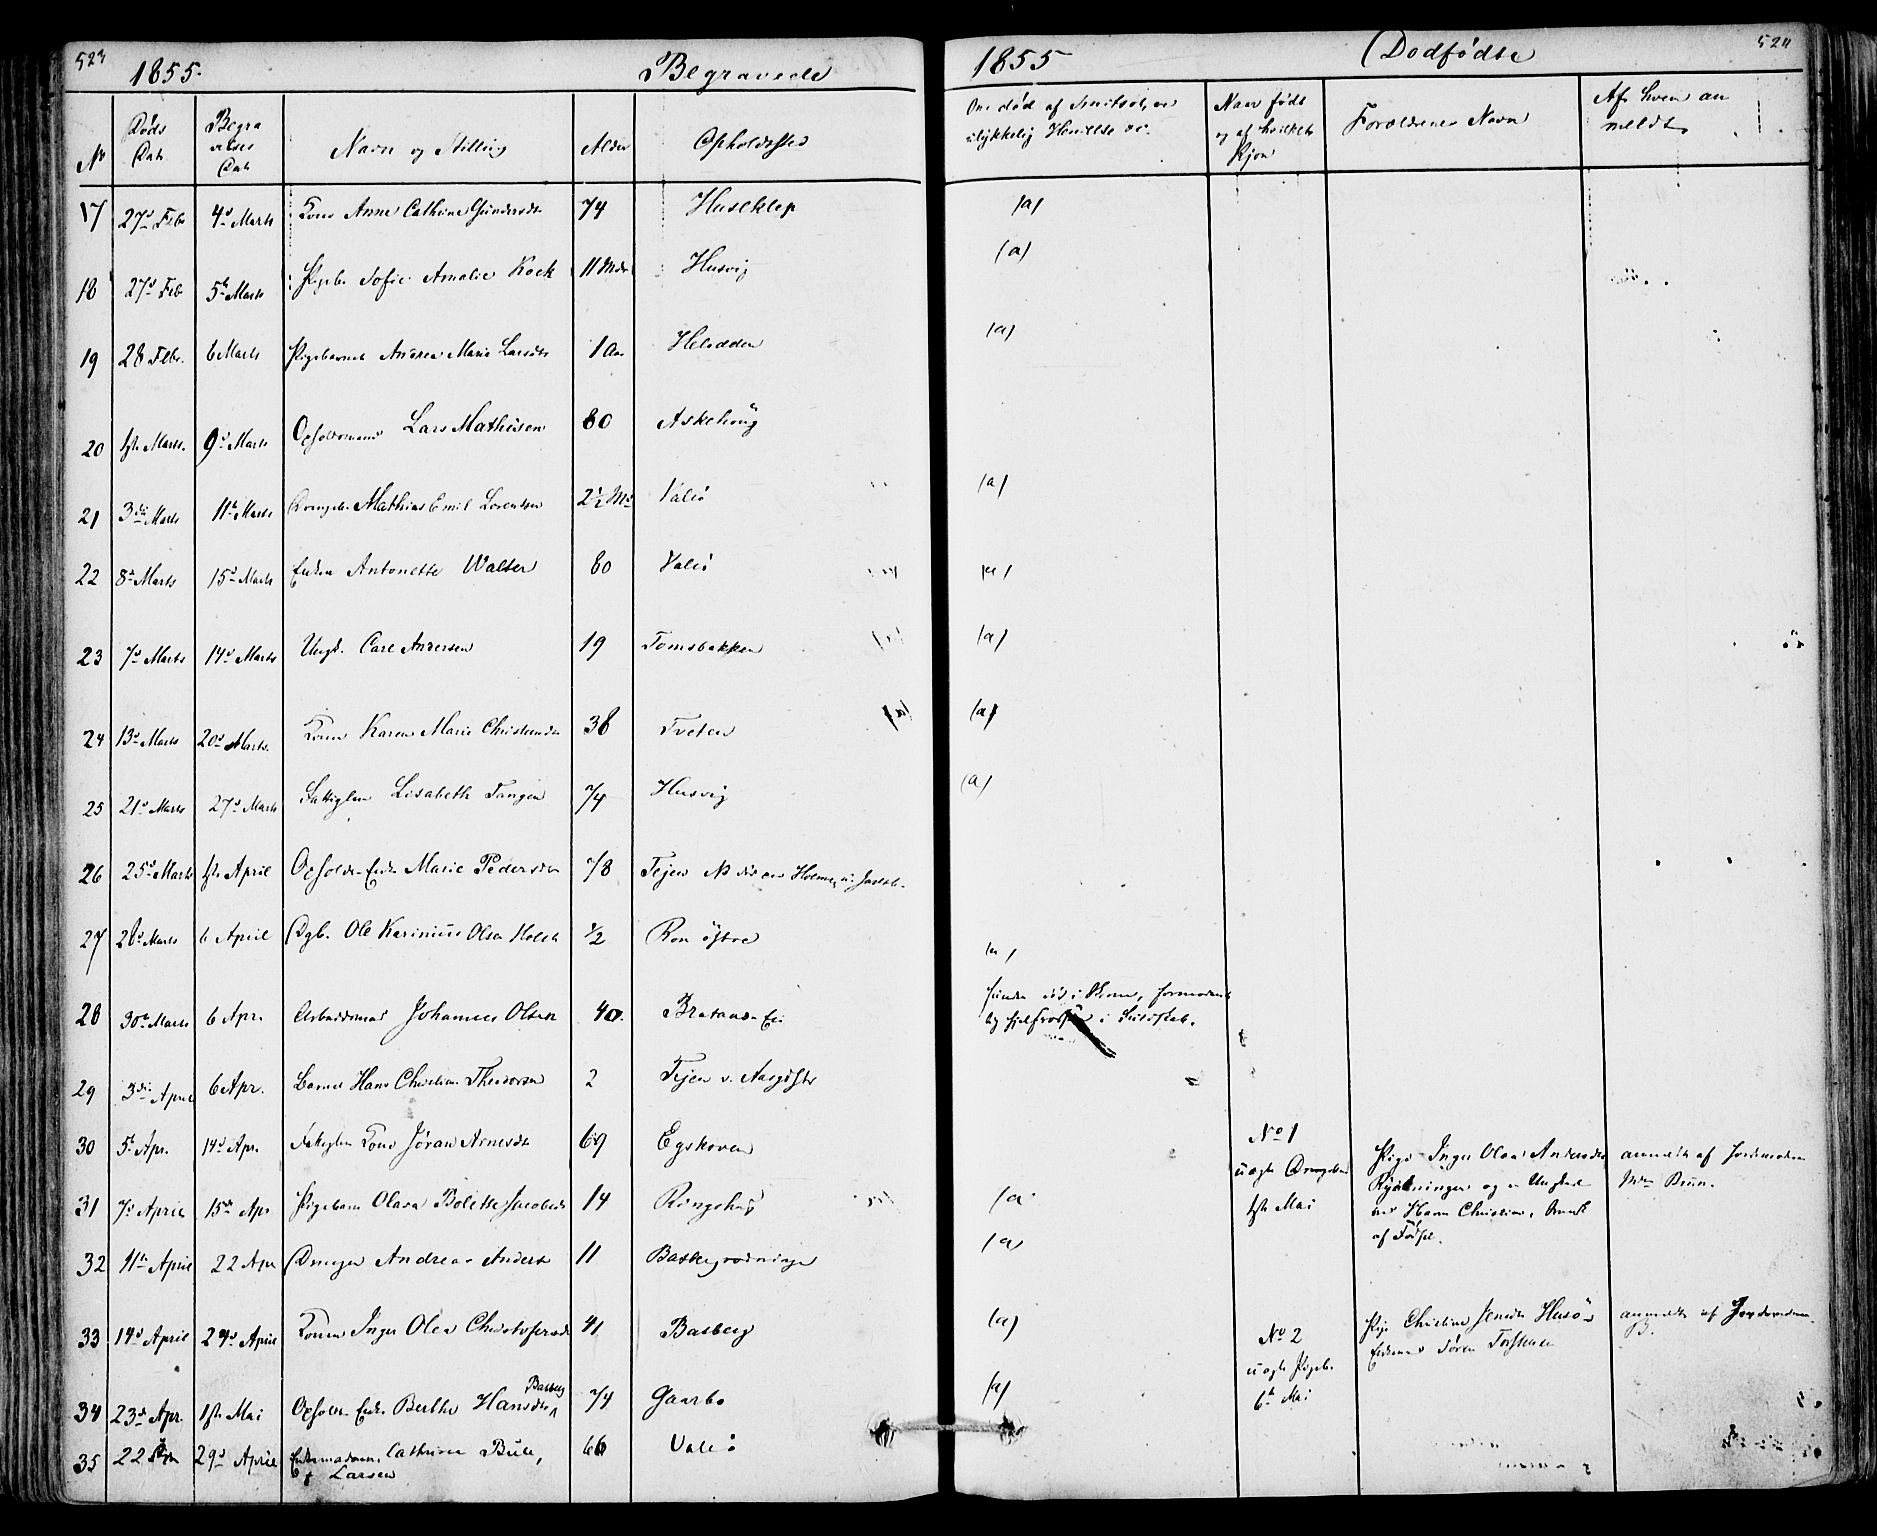 523
1855.
Begravede
No
Døds Dat.
Begravelses Dat.
Navn og Stilling
Alder
Opholdssted
17 27d Febr 4d Marts Kone Anne Cathrine Gundersdt 74 Huseklep
18 27d Feb 5te Marts Pigeb. Sofie Amalie Kock 11 Mdr Husvig
19 28 Febr. 6 Marts Pigebarnet Andrea Marie Larsdt 1 Aar Helsdden
20 1ste Marts. 9d Marts Opholdsmand Lars Mathisen 80 Askehoug
21 3die Marts 11te Marts Drengeb. Mathias Emil Lorentzen 2½ Md Valø
22 8de Marts 15d Marts Enken Antonette Walter 60 Valø
23 7d Marts 14d Marts Ungk. Carl Andersen 19 Tomsbakken
24 13d Marts 20d Marts. Kone Karen Marie Christensdt 38 Tveten
25 21d Marts 27d Marts Fattiglem Lisabeth Tangen 74 Husvig
26 25d Marts 1ste April Opholds-Enke Marie Pedersdt 78 Tejen
27 28d Marts 6 April Dgb. Ole Karinius Olsen Holst ½ Ron østre
28 30te Marts 6 Apr. Arbeidsmand Johannes Olsen 40. Bratans-Ei
29 3die April 6 Apr. Barnet Hans Christian Theodorsen 2 Tejen v.
30 5te Apr. 14d Apr. Fattiglem Kone Jøran Arnesdt 69 Egskoven
31 7d April 15de Apr Pigebarn Olava Bolette Jacobsdt 14 Ringshug
32 11te April 22 Apr Drengen Andreas Anders 11 Baskegrødninge
33 14d April 24d April Konen Inger Olea Christofersdt 41 Basberg
34 23d Apr. 1ste Mai Opholds-Enke Berthe Hansdtr Basberg 74 Gaarbo
35 22 Apr 29d April Enkemadam Cathrine Bull, 66 Valø
f Larsen
1855
Dødfødte
524
Om død af Smitsot, en
ulykkelig Hendelse &c.
Naar født
og af hvilket
Kjøn
Forældrenes Navn
Af hvem an
meldt
(a)
(a)
(a)
(a)
(a)
(a)
(a)
(a)
(a)
funden død i Skoven, formodent
lig ihjelfrossen i Fuldskab.
(a)
(a)
(a)
(a)
No 1
uægte Drengebarn
1ste Mai
Pige Inger Olava Andersdtr
og Ungkarl
Hans Christian,
af Fødsel.
anmeldt af Jordemoder
Bruun.
No 2
uægte Pigeb.
6te Mai
Pige Christine Jensdtr Husø
Enkemand Søren Torstensen
anmeldt af Jordemoderen